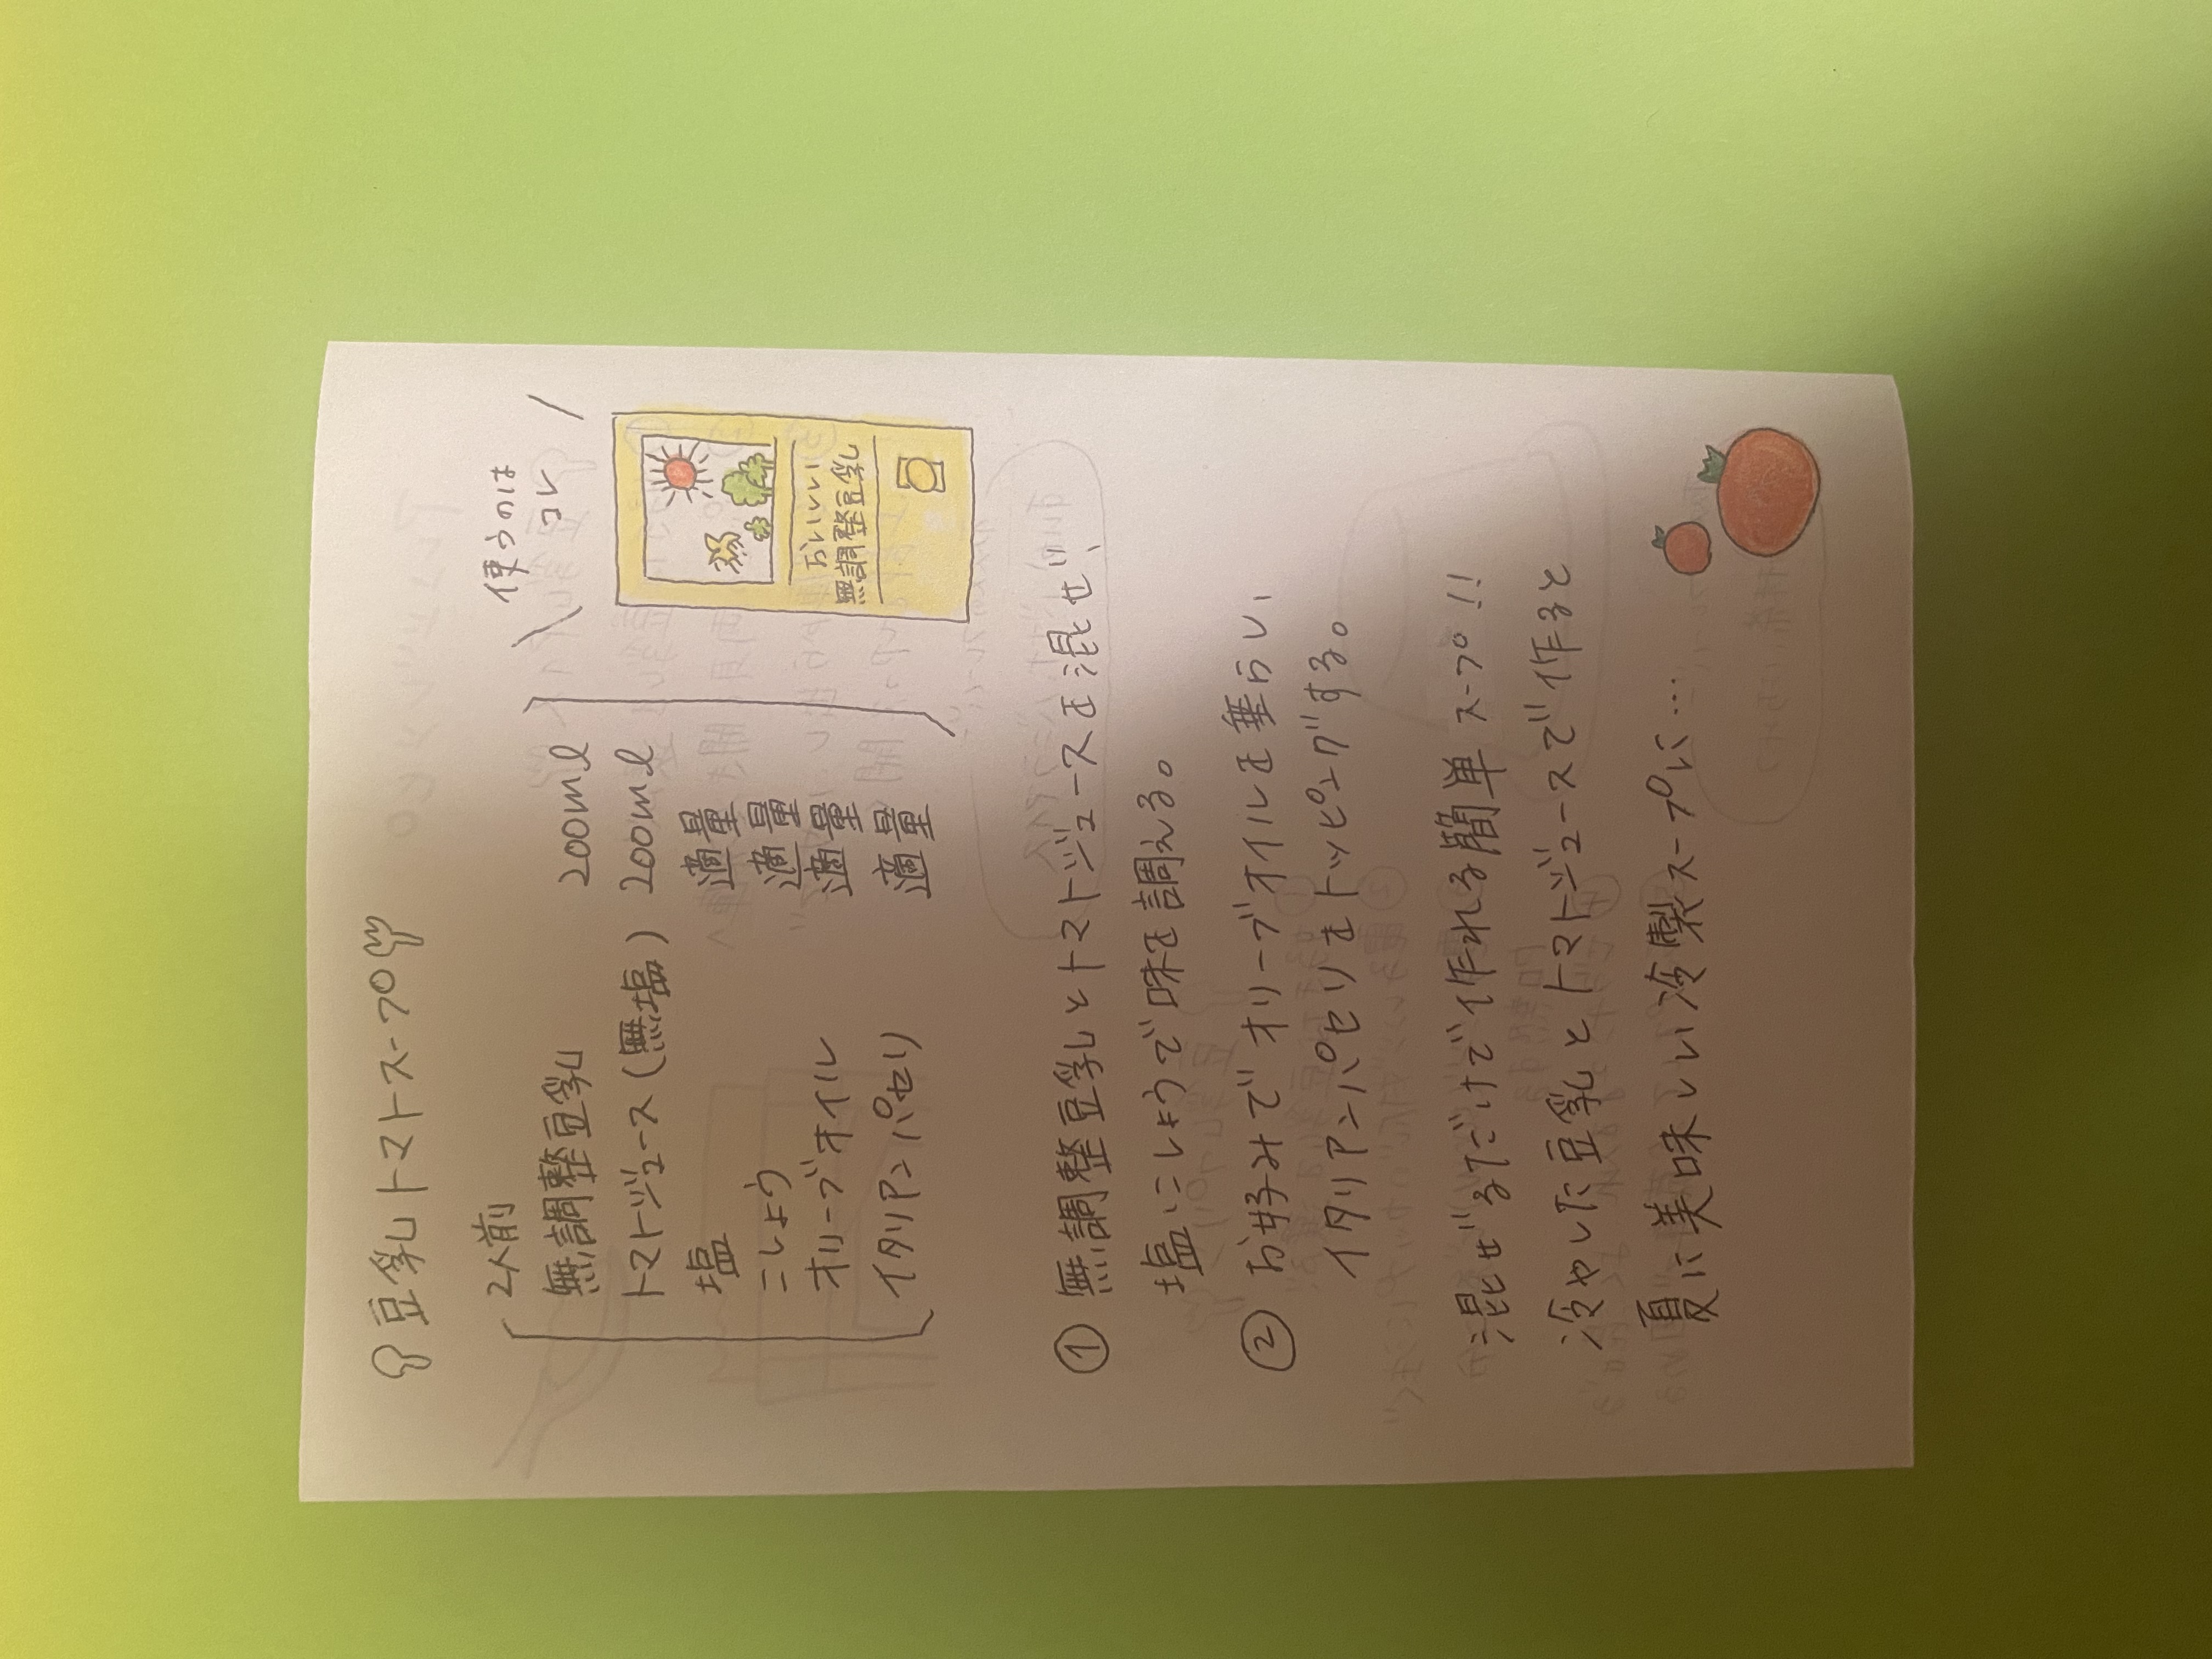 豆乳トマトスープ
2人前
無調整豆乳 200ml
トマトジュース(無塩) 200ml
塩 適量
こしょう 適量
オリーブオイル 適量
イタリアンパセリ 適量
使うのは
コレ
おいしい
無調整豆乳
① 無調整豆乳とトマトジュースを混ぜ、
塩こしょうで味を調える。
② お好みでオリーブオイルを垂らし、
イタリアンパセリをトッピングする。
混ぜるだけで作れる簡単スープ!!
冷やした豆乳とトマトジュースで作ると
夏に美味しい冷製スープに…